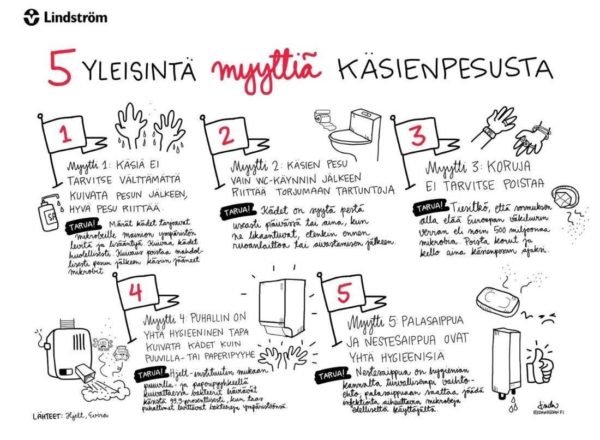 Lindström
5 YLEISINTÄ myyttiä KÄSIENPESUSTA
1
Myytti 1: KÄSIÄ EI
TARVITSE VÄLTTÄMÄTTÄ
KUIVATA PESUN JÄLKEEN,
HYVÄ PESU RIITTÄÄ.
TARUA! Märät kädet tarjoavat
mikrobeille mainion ympäristön
levitä ja lisääntyä. Kuivaa kädet
huolellisesti. Kuivaus poistaa mahdol-
lisesti pesun jälkeen käsiin jääneet
mikrobit
2
Myytti 2: KÄSIEN PESU
VAIN WC-KÄYNNIN JÄLKEEN
RIITTÄÄ TORJUMAAN TARTUNTOJA
TARUA! Kädet on syytä pestä
useasti päivässä tai aina, kun
ne likaantuvat, etenkin ennen
ruoanlaittoa tai aivastamisen jälkeen.
3
Myytti 3: KORUJA
EI TARVITSE POISTAA
TARUA! Tiesitkö, että sormuksen
alla elää Euroopan väkiluvun
verran eli noin 500 miljoonaa
mikrobia. Poista korut ja
kello aina käsienpesun ajaksi
4
Myytti 4 PUHALLIN ON
YHTÄ HYGIEENINEN TAPA
KUIVATA KÄDET KUIN
PUUVILLA- TAI PAPERIPYYHE
TARUA! Hjelt-instituutin mukaan
puuvilla- ja paperipyyhkeellä
kuivattaessa bakteerit häviävät
käsistä 99,9-prosenttisesti, kun taas
puhaltimet levittävät bakteereja ympäristöönsä.
5
Myytti 5: PALASAIPPUA
JA NESTESAIPPUA OVAT
YHTÄ HYGIENISIÄ
TARUA! Nestesaippua on hygienian
kannalta turvallisempi vaihto-
ehto, palasaippuaan saattaa jäädä
infektioita aiheuttavia mikrobeja
edelliseltä käyttäjältä
LÄHTEET: Hjelt, Evira